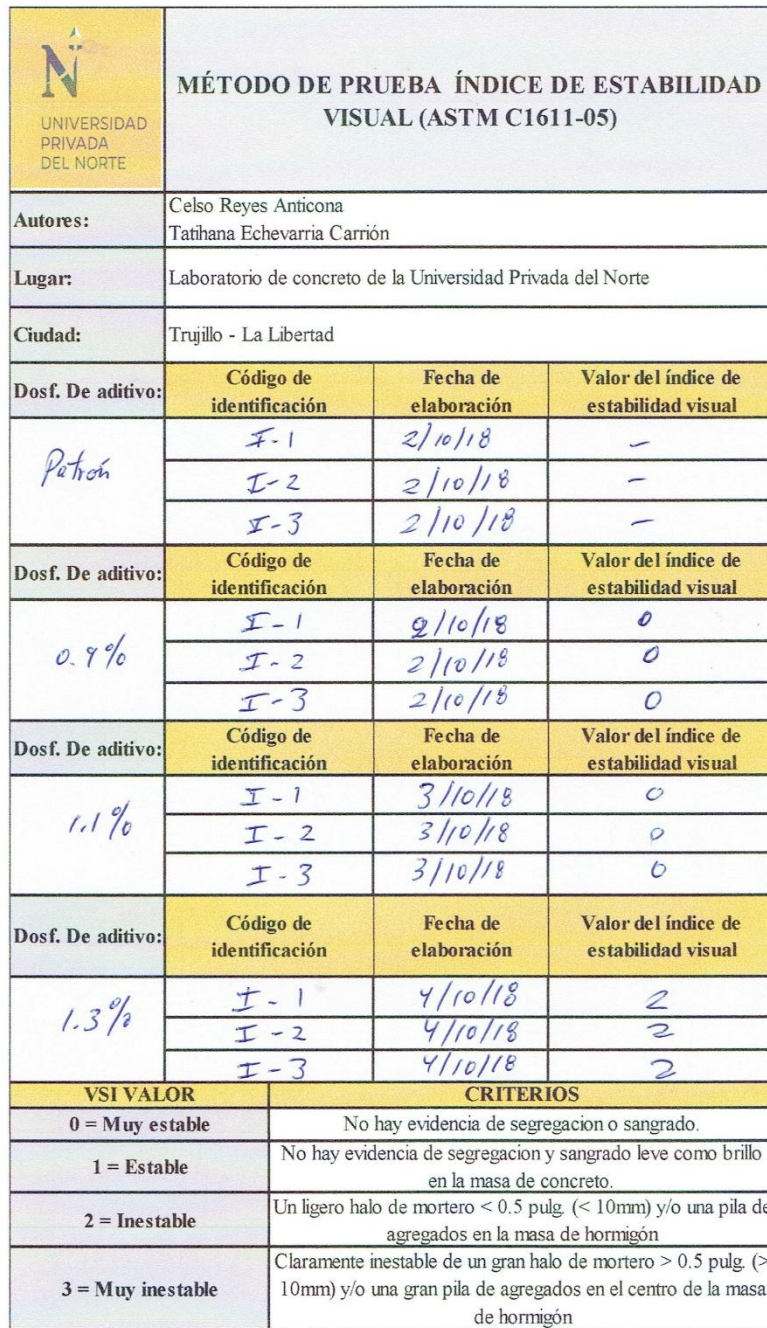 UNIVERSIDAD
PRIVADA
DEL NORTE
MÉTODO DE PRUEBA ÍNDICE DE ESTABILIDAD
VISUAL (ASTM C1611-05)
Autores:
Celso Reyes Anticona
Tatihana Echevarria Carrión
Lugar:
Laboratorio de concreto de la Universidad Privada del Norte
Ciudad:
Trujillo - La Libertad
Dosf. De aditivo: Código de identificación Fecha de elaboración Valor del índice de estabilidad visual
Patrón
I-1 2/10/18 -
I-2 2/10/18 -
I-3 2/10/18 -
Dosf. De aditivo: Código de identificación Fecha de elaboración Valor del índice de estabilidad visual
I-1 2/10/18 0
I-2 2/10/18 0
I-3 2/10/18 0
Dosf. De aditivo: Código de identificación Fecha de elaboración Valor del índice de estabilidad visual
1.1%
I-1 3/10/18 0
I-2 3/10/18 0
I-3 3/10/18 0
Dosf. De aditivo: Código de identificación Fecha de elaboración Valor del índice de estabilidad visual
1.3%
I-1 4/10/18 2
I-2 4/10/18 2
I-3 4/10/18 2
VSI VALOR CRITERIOS
0 = Muy estable No hay evidencia de segregacion o sangrado.
1 = Estable No hay evidencia de segregacion y sangrado leve como brillo
en la masa de concreto.
2 = Inestable Un ligero halo de mortero < 0.5 pulg. (< 10mm) y/o una pila de
agregados en la masa de hormigón
3 = Muy inestable Claramente inestable de un gran halo de mortero > 0.5 pulg. (>
10mm) y/o una gran pila de agregados en el centro de la masa
de hormigón